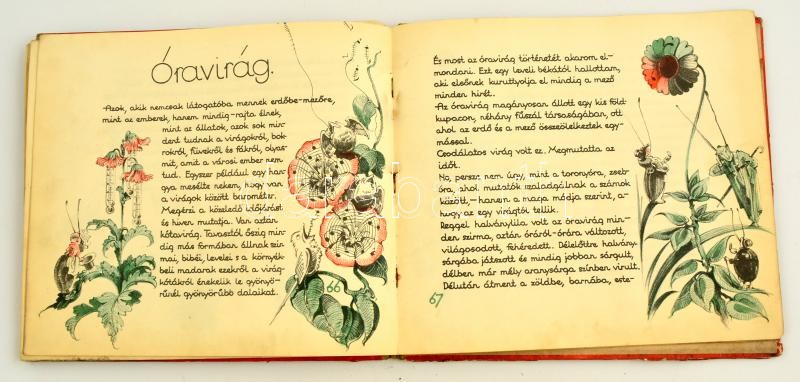 Óravirág.
Azok, akik nemcsak látogatóba mennek erdőbe-mezőre,
mint az emberek, hanem mindig rajta élnek,
mint az állatok, azok sok min-
dent tudnak a virágokról, bok-
rokról, füvekről és fákról, olyas-
mit, amit a városi ember nem
tud. Egyszer például egy han-
gya mesélte nekem, hogy van
a virágok között barométer.
Megérzi a közeledő időjárást
és híven mutatja. Van aztán
kótavirág. Tavasztól őszig min-
dig más formában állnak szir-
mai, bibéi, levelei s a környék-
beli madarak ezekről a virág-
kótákról éneklik le gyönyö-
rűnél gyönyörűbb dalaikat.
66
És most az óravirág történetét akarom el-
mondani. Ezt egy leveli békától hallottam,
aki elsőnek kuruttyolja el mindig a mező
minden hírét.
Az óravirág magányosan állott egy kis föld-
kupacon, néhány fűszál társaságában, ott
ahol az erdő és a mező összeölelkeztek egy-
mással.
Csodálatos virág volt ez. Megmutatta az
időt.
No, persze nem úgy, mint a toronyóra, zseb-
óra, ahol mutatók szaladgálnak a számok
között, – hanem a maga módja szerint, a-
hogy az egy virágtól telik.
Reggel halványlila volt az óravirág min-
den szirma, aztán óráról-órára változott,
világosodott, fehéredett. Délelőttre halvány-
sárgába játszott és mindig jobban sárgult,
délben már mély aranysárga színben virult.
Délután átment a zöldbe, barnába, este-
67